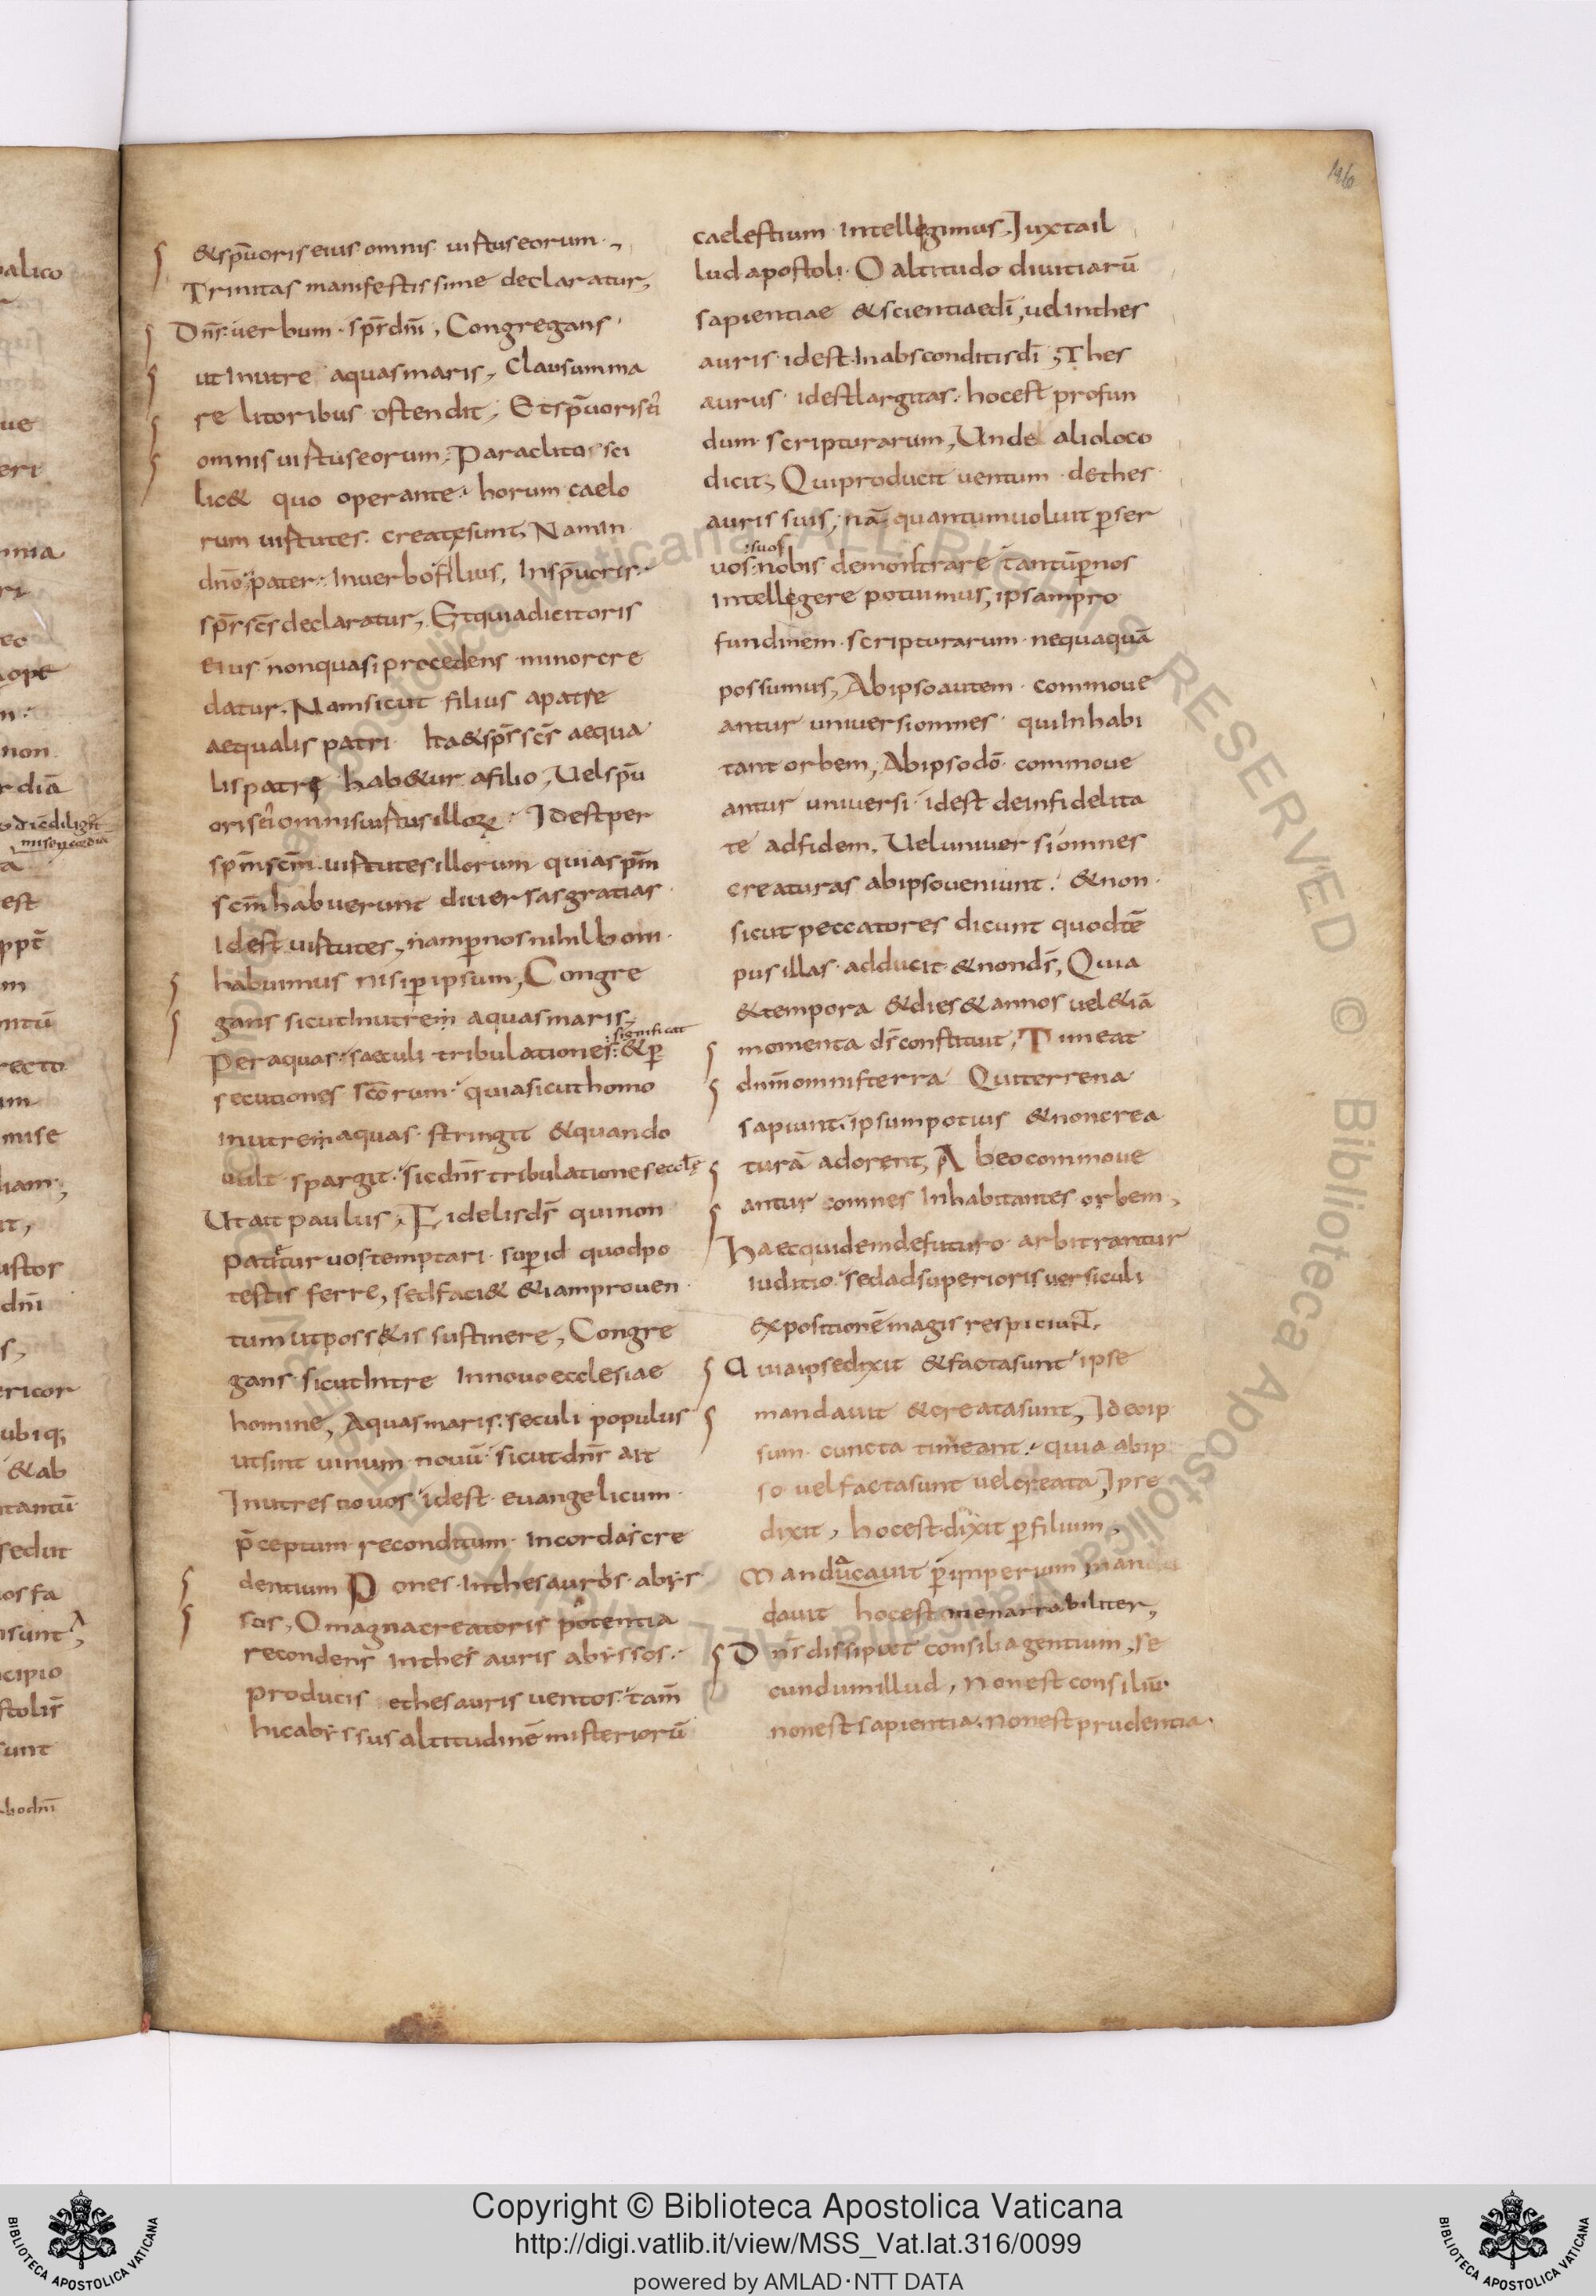 146
&sp̄uoris eius omnis uirtus eorum.,
Trinitas manifestissime declaratur,
Dn̄s. uerbum. sp̄r dn̄i, Congregans
ut In utre aquas maris, Clausum ma
re litoribus ostendit, Et sp̄u oris ei
omnis uirtus eorum, Paraclitus sci
lic& quo operante. horum caelo
rum uirtutes. creatę sunt, Nam In
dn̄o pater. In uerbo filius, In sp̄u oris.
sp̄r sc̄s declaratur, Et quia dicit oris
eius non quasi procedens minor cre
datur. Nam sicut filius a patre
aequalis patri Ita & sp̄r sc̄s aequa
lis patre hab&ur a filio, Uel sp̄u
oris ei omnis uirtus illoꝝ. Idest per
sp̄m sc̄m. uirtutes illorum quia sp̄m
sc̄m habuerunt diuersas gratias
Idest uirtutes, nam p̄ nos nihil boni
habuimus nisi p̄ ipsum, Congre
gans sicut In utrem aquas maris,
:significat
Per aquas saeculi tribulationes: & p̄
secutiones sc̄orum quia sicut homo
In utrem aquas stringit & quando
uult spargit. sic dn̄s tribulationes eccłę
Ut ait paulus, Fidelis ds̄ qui non
patitur uos temptari sup̄ id quod po
testis ferre, sed faci& &iam prouen
tum ut poss&is sustinere, Congre
gans sicut In tre In nouo ecclesiae
homine, Aquas maris. seculi populus
ut sint uinum nouū sicut dn̄s ait
In utres nouos idest euangelicum
p̄ceptum reconditum In corda cre
dentium Pones In thesauros abys
sos, O magna creatoris potentia
recondens In thesauris abyssos.
producis ethesauris uentos. tam̄
hic abyssus altitudinē misteriorū
caelestium Intellegimus, Iuxta il
lud apostoli. O altitudo diuitiarū
sapientiae & scientiae dī, uel In thes
auris idest In absconditis dī, Thes
aurus idest largitas. hoc est profun
dum scripturarum, Unde alio loco
dicit, Qui producit uentum de thes
auris suis, nā quantum uoluit p̄ ser
:suos
uos: nobis demonstrare tantū p̄ nos
Intellegere potuimus, ipsam pro
fundinem scripturarum nequaquā
possumus, Ab ipso autem commoue
antur uniuersi omnes qui Inhabi
tant orbem, Ab ipso dō commoue
antur uniuersi idest de infidelita
te ad fidem. Uel uniuersi omnes
creaturas ab ipso ueniunt. & non
sicut peccatores dicunt quod tē
pus illas adducit & non ds̄, Quia
& tempora & dies & annos uel &iā
momenta ds̄ constituit, Timeat
dn̄m omnis terra Qui terrena
sapiunt. ipsum potius & non crea
turā adorent, Ab eo commoue
antur omnes Inhabitantes orbem,
Haec quidem de futuro arbitrantur
iuditio. sed ad superioris uersiculi
expositionē magis respiciunt.
Quia ipse dixit & facta sunt ipse
mandauit & creata sunt, Ideo ip
sum cuncta timeant. quia ab ip
so uel facta sunt uel creata, Ipse
dixit, hoc est. dixit p̄ filium,
Manducauit p̄ imperium manda
dauit hoc est inenarrabiliter,
Dn̄s dissipuet consilia gentium, se
cundum illud, Non est consiliū
non est sapientia. non est prudentia.
Copyright © Biblioteca Apostolica Vaticana
http://digi.vatlib.it/view/MSS_Vat.lat.316/0099
powered by AMLAD·NTT DATA
BIBLIOTECA APOSTOLICA VATICANA
BIBLIOTECA APOSTOLICA VATICANA